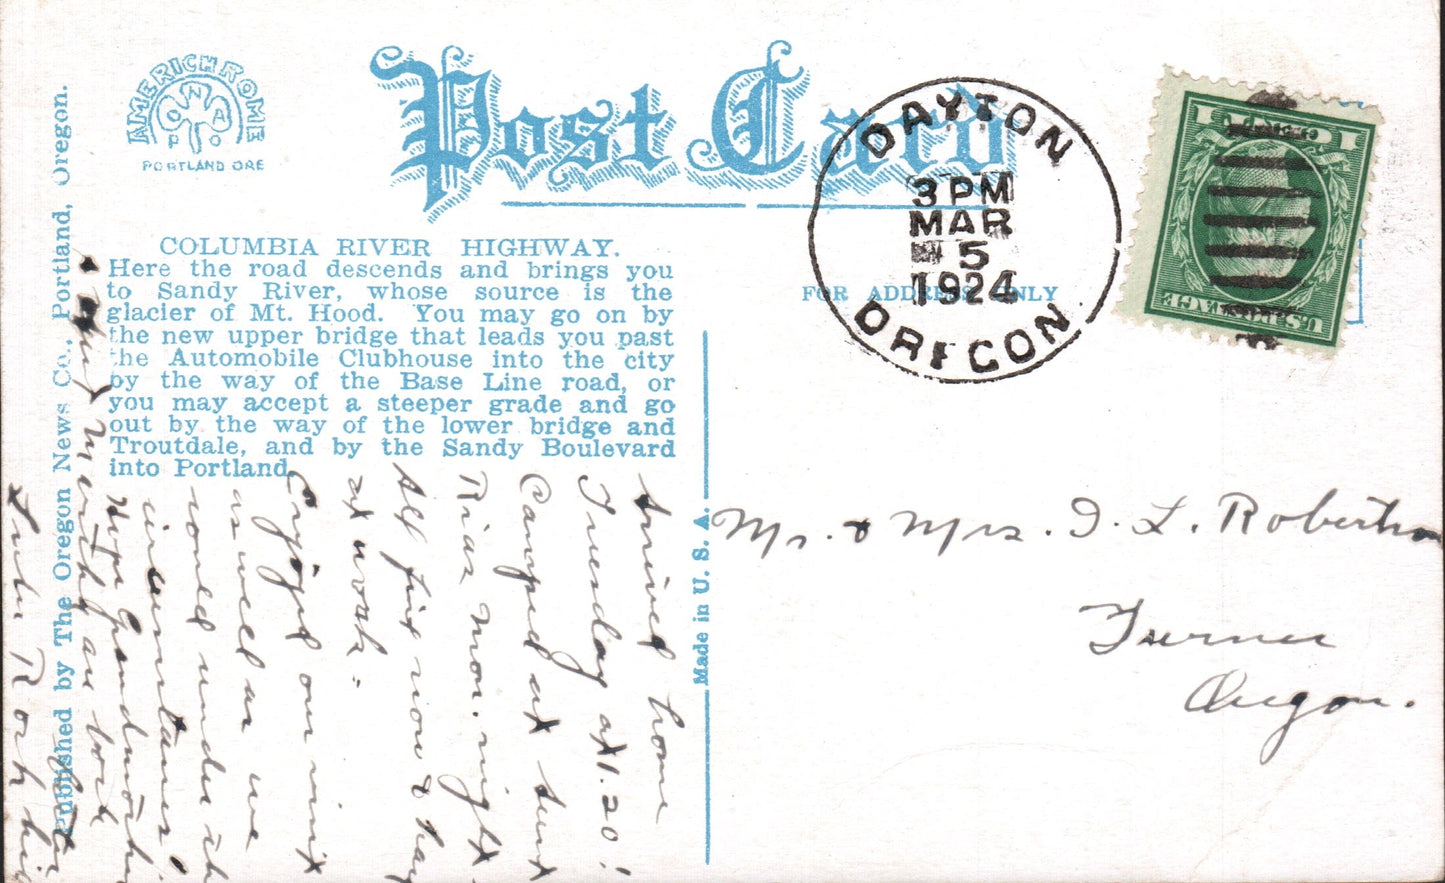 AMERICHROME
PORTLAND ORE
Post Card
DAYTON
3 PM
MAR
5
1924
OREGON
1 CENT 1
U.S. POSTAGE
COLUMBIA RIVER HIGHWAY.
Here the road descends and brings you
to Sandy River, whose source is the
glacier of Mt. Hood. You may go on by
the new upper bridge that leads you past
the Automobile Clubhouse into the city
by the way of the Base Line road, or
you may accept a steeper grade and go
out by the way of the lower bridge and
Troutdale, and by the Sandy Boulevard
into Portland.
FOR ADDRESS ONLY
Published by The Oregon News Co., Portland, Oregon.
Made in U. S. A.
Arrived home
Tuesday at 1.20!
Camped at
Mon. night
All fine now & hay
at work -
Enjoyed our visit
as well as we
could under th
circumstances!
Hope Grandmother
Mr. & Mrs. I. L. Robertson
Turner
Oregon.